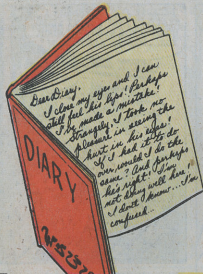 Dear Diary,
I close my eyes and I can
still feel his lips! Perhaps
I've made a mistake!
Strangely, I took no
pleasure in seeing the
hurt in his eyes!
If I had it to do
over, would I do the
same? And perhaps
he's right! I'm
not doing well here.
I don't know... I'm
confused...
DIARY